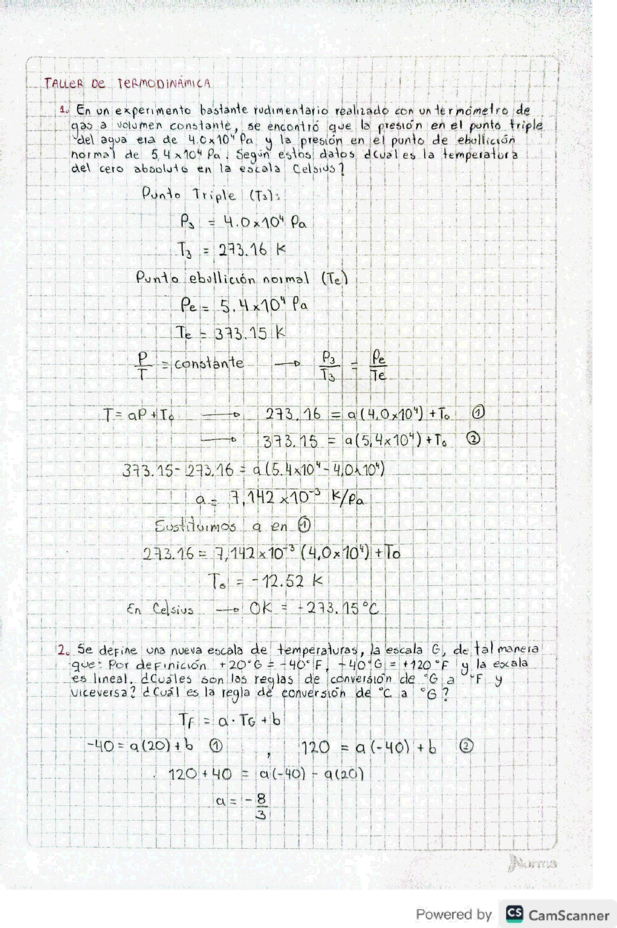 TALLER DE TERMODINÁMICA
1. En un experimento bastante rudimentario realizado con un termómetro de
gas a volumen constante, se encontró que la presión en el punto triple
del agua era de 4.0x10⁴ Pa y la presión en el punto de ebullición
normal de 5,4x10⁴ Pa. Según estos datos ¿cual es la temperatura
del cero absoluto en la escala Celsius?
Punto Triple (T3):
P₃ = 4.0x10⁴ Pa
T₃ = 273.16 K
Punto ebullición normal (Te)
Pe = 5.4x10⁴ Pa
Te = 373.15 K
P/T = constante → P₃/T₃ = Pe/Te
T = aP + T₀ → 273.16 = a(4,0x10⁴) + T₀ ①
→ 373.15 = a(5,4x10⁴) + T₀ ②
373.15 - 273,16 = a(5.4x10⁴ - 4,0x10⁴)
a = 7,142 x10⁻³ K/Pa
Sustituimos a en ①
273.16 = 7,142x10⁻³ (4,0x10⁴) + T₀
T₀ = -12.52 K
En Celsius → 0K = -273.15°C
2. Se define una nueva escala de temperaturas, la escala G, de tal manera
que: Por definición +20°G = -40°F, -40°G = +120°F y la escala
es lineal. ¿Cuáles son las reglas de conversión de °G a °F y
viceversa? ¿Cuál es la regla de conversión de °C a °G?
TF = a · TG + b
-40 = a(20) + b ① , 120 = a(-40) + b ②
120 + 40 = a(-40) - a(20)
a = -8/3
Norma
Powered by CS CamScanner